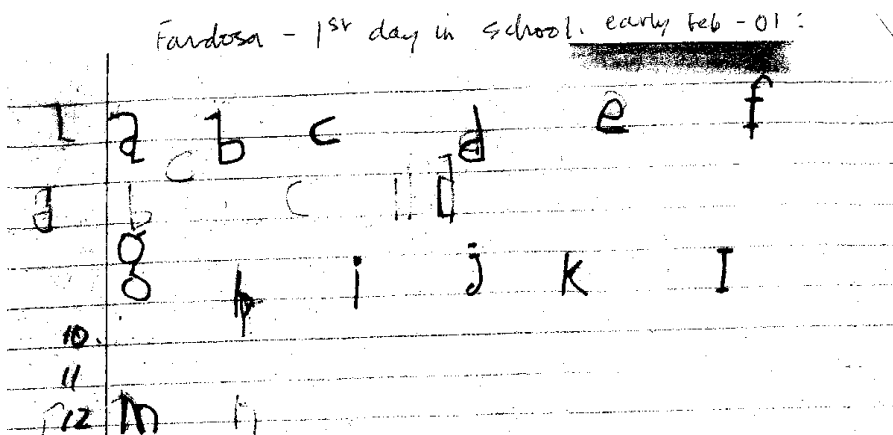 Fardosa - 1st day in school. early Feb - 01:
a b c d e f
c
d b c d
g h i j k I
10.
11
12 m n